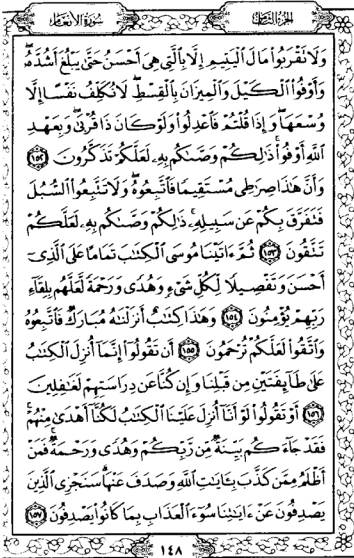 سورة الأنعام
الجزء الثامن
وَلَا تَقْرَبُوا۟ مَالَ ٱلْيَتِيمِ إِلَّا بِٱلَّتِى هِىَ أَحْسَنُ حَتَّىٰ يَبْلُغَ أَشُدَّهُۥ
وَأَوْفُوا۟ ٱلْكَيْلَ وَٱلْمِيزَانَ بِٱلْقِسْطِ لَا نُكَلِّفُ نَفْسًا إِلَّا
وُسْعَهَا وَإِذَا قُلْتُمْ فَٱعْدِلُوا۟ وَلَوْ كَانَ ذَا قُرْبَىٰ وَبِعَهْدِ
ٱللَّهِ أَوْفُوا۟ ذَٰلِكُمْ وَصَّىٰكُم بِهِۦ لَعَلَّكُمْ تَذَكَّرُونَ ١٥٢
وَأَنَّ هَٰذَا صِرَٰطِى مُسْتَقِيمًا فَٱتَّبِعُوهُ وَلَا تَتَّبِعُوا۟ ٱلسُّبُلَ
فَتَفَرَّقَ بِكُمْ عَن سَبِيلِهِۦ ذَٰلِكُمْ وَصَّىٰكُم بِهِۦ لَعَلَّكُمْ
تَتَّقُونَ ١٥٣ ثُمَّ ءَاتَيْنَا مُوسَى ٱلْكِتَٰبَ تَمَامًا عَلَى ٱلَّذِىٓ
أَحْسَنَ وَتَفْصِيلًا لِّكُلِّ شَىْءٍ وَهُدًى وَرَحْمَةً لَّعَلَّهُم بِلِقَآءِ
رَبِّهِمْ يُؤْمِنُونَ ١٥٤ وَهَٰذَا كِتَٰبٌ أَنزَلْنَٰهُ مُبَارَكٌ فَٱتَّبِعُوهُ
وَٱتَّقُوا۟ لَعَلَّكُمْ تُرْحَمُونَ ١٥٥ أَن تَقُولُوٓا۟ إِنَّمَآ أُنزِلَ ٱلْكِتَٰبُ
عَلَىٰ طَآئِفَتَيْنِ مِن قَبْلِنَا وَإِن كُنَّا عَن دِرَاسَتِهِمْ لَغَٰفِلِينَ
١٥٦ أَوْ تَقُولُوا۟ لَوْ أَنَّآ أُنزِلَ عَلَيْنَا ٱلْكِتَٰبُ لَكُنَّآ أَهْدَىٰ مِنْهُمْ
فَقَدْ جَآءَكُم بَيِّنَةٌ مِّن رَّبِّكُمْ وَهُدًى وَرَحْمَةٌ فَمَنْ
أَظْلَمُ مِمَّن كَذَّبَ بِـَٔايَٰتِ ٱللَّهِ وَصَدَفَ عَنْهَا سَنَجْزِى ٱلَّذِينَ
يَصْدِفُونَ عَنْ ءَايَٰتِنَا سُوٓءَ ٱلْعَذَابِ بِمَا كَانُوا۟ يَصْدِفُونَ ١٥٧
١٤٨